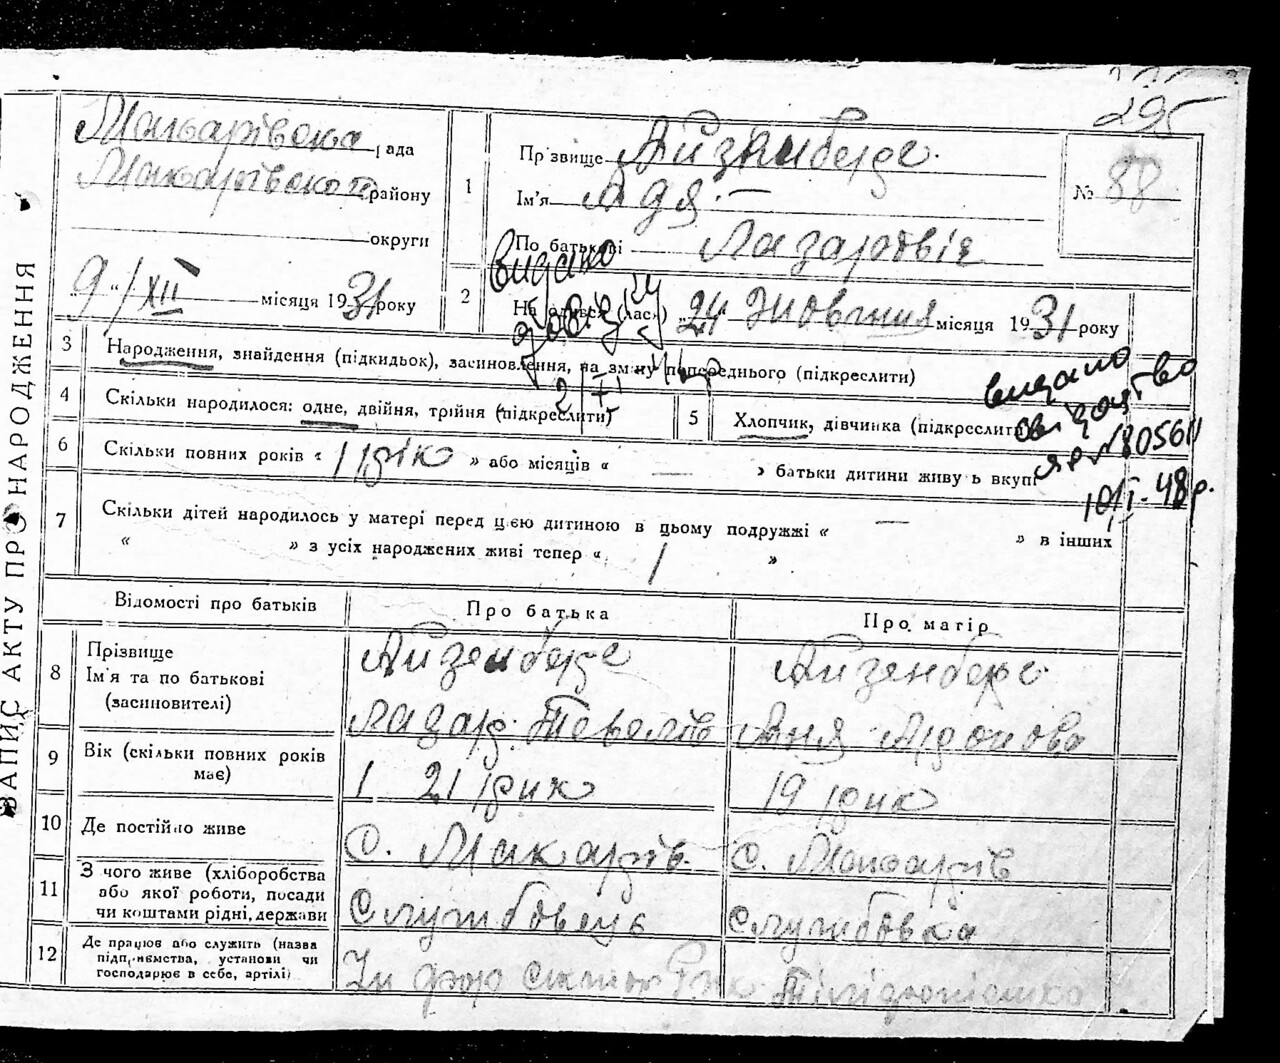 295
ЗАПИС АКТУ ПРО НАРОДЖЕННЯ
Макарівська рада
Макарівського району
округи
„9“/XII місяця 1931 року
1
Прізвище Айзенберг
Ім'я Адя
По батькові Лазаровіч
№ 88
2
Народився (лась) „24“ Жовтня місяця 1931 року
видано
2/I
3
Народження, знайдення (підкидьок), засиновлення, на зміну попереднього (підкреслити)
4
Скільки народилося: одне, двійня, трійня (підкреслити)
5
Хлопчик, дівчинка (підкреслити)
видано
свідоцтво
ЯР №805611
10/I-48р.
6
Скільки повних років « 1 рік » або місяців « — » батьки дитини живуть вкупі
7
Скільки дітей народилось у матері перед цією дитиною в цьому подружжі « — » в інших
« » з усіх народжених живі тепер « 1 »
Відомості про батьків
Про батька
Про матір
8
Прізвище
Ім'я та по батькові
(засиновителі)
Айзенберг
Лазар Тевелів
Айзенберг
Аня Аронова
9
Вік (скільки повних років має)
21 рик
19 рик
10
Де постійно живе
С. Макарів
С. Макарів
11
З чого живе (хліборобства
або якої роботи, посади
чи коштами рідні, держави
Службовець
Службовка
12
Де працює або служить (назва
підприємства, установи чи
господарює в себе, артілі)